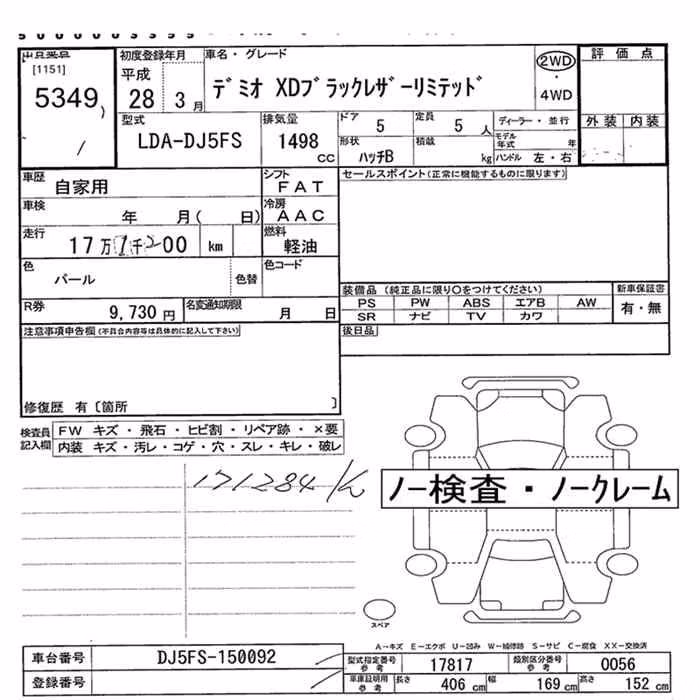 [1151]
5349
初度登録年月
平成
28 3月
車名・グレード
デミオ XDブラックレザーリミテッド
2WD
・
4WD
評価点
外装 内装
型式
LDA-DJ5FS
排気量
1498
cc
ドア
5
定員
5人
ディーラー・並行
モデル年式 年
形状
ハッチB
積載
kg
ハンドル 左・右
車歴
自家用
シフト
FAT
車検
年 月( 日)
冷房
AAC
走行
17万1千200 km
燃料
軽油
色
パール
色替
色コード
R券
9,730円
名変通知期限
月 日
セールスポイント(正常に機能するものに限ります)
装備品 (純正品に限り○をつけてください)
PS PW ABS エアB AW
SR ナビ TV カワ
新車保証書
有・無
後日品
注意事項申告欄(不具合内容等は具体的に記入して下さい)
修復歴 有〔箇所 〕
検査員記入欄
FW キズ・飛石・ヒビ割・リペア跡・×要
内装 キズ・汚レ・コゲ・穴・スレ・キレ・破レ
171284/K
ノー検査・ノークレーム
スペア
A-キズ E-エクボ U-凹み W-補修跡 S-サビ C-腐食 XX-交換済
車台番号
DJ5FS-150092
登録番号
型式指定番号参考
17817
類別区分番号参考
0056
車庫証明用参考
長さ
406 cm
幅
169 cm
高さ
152 cm